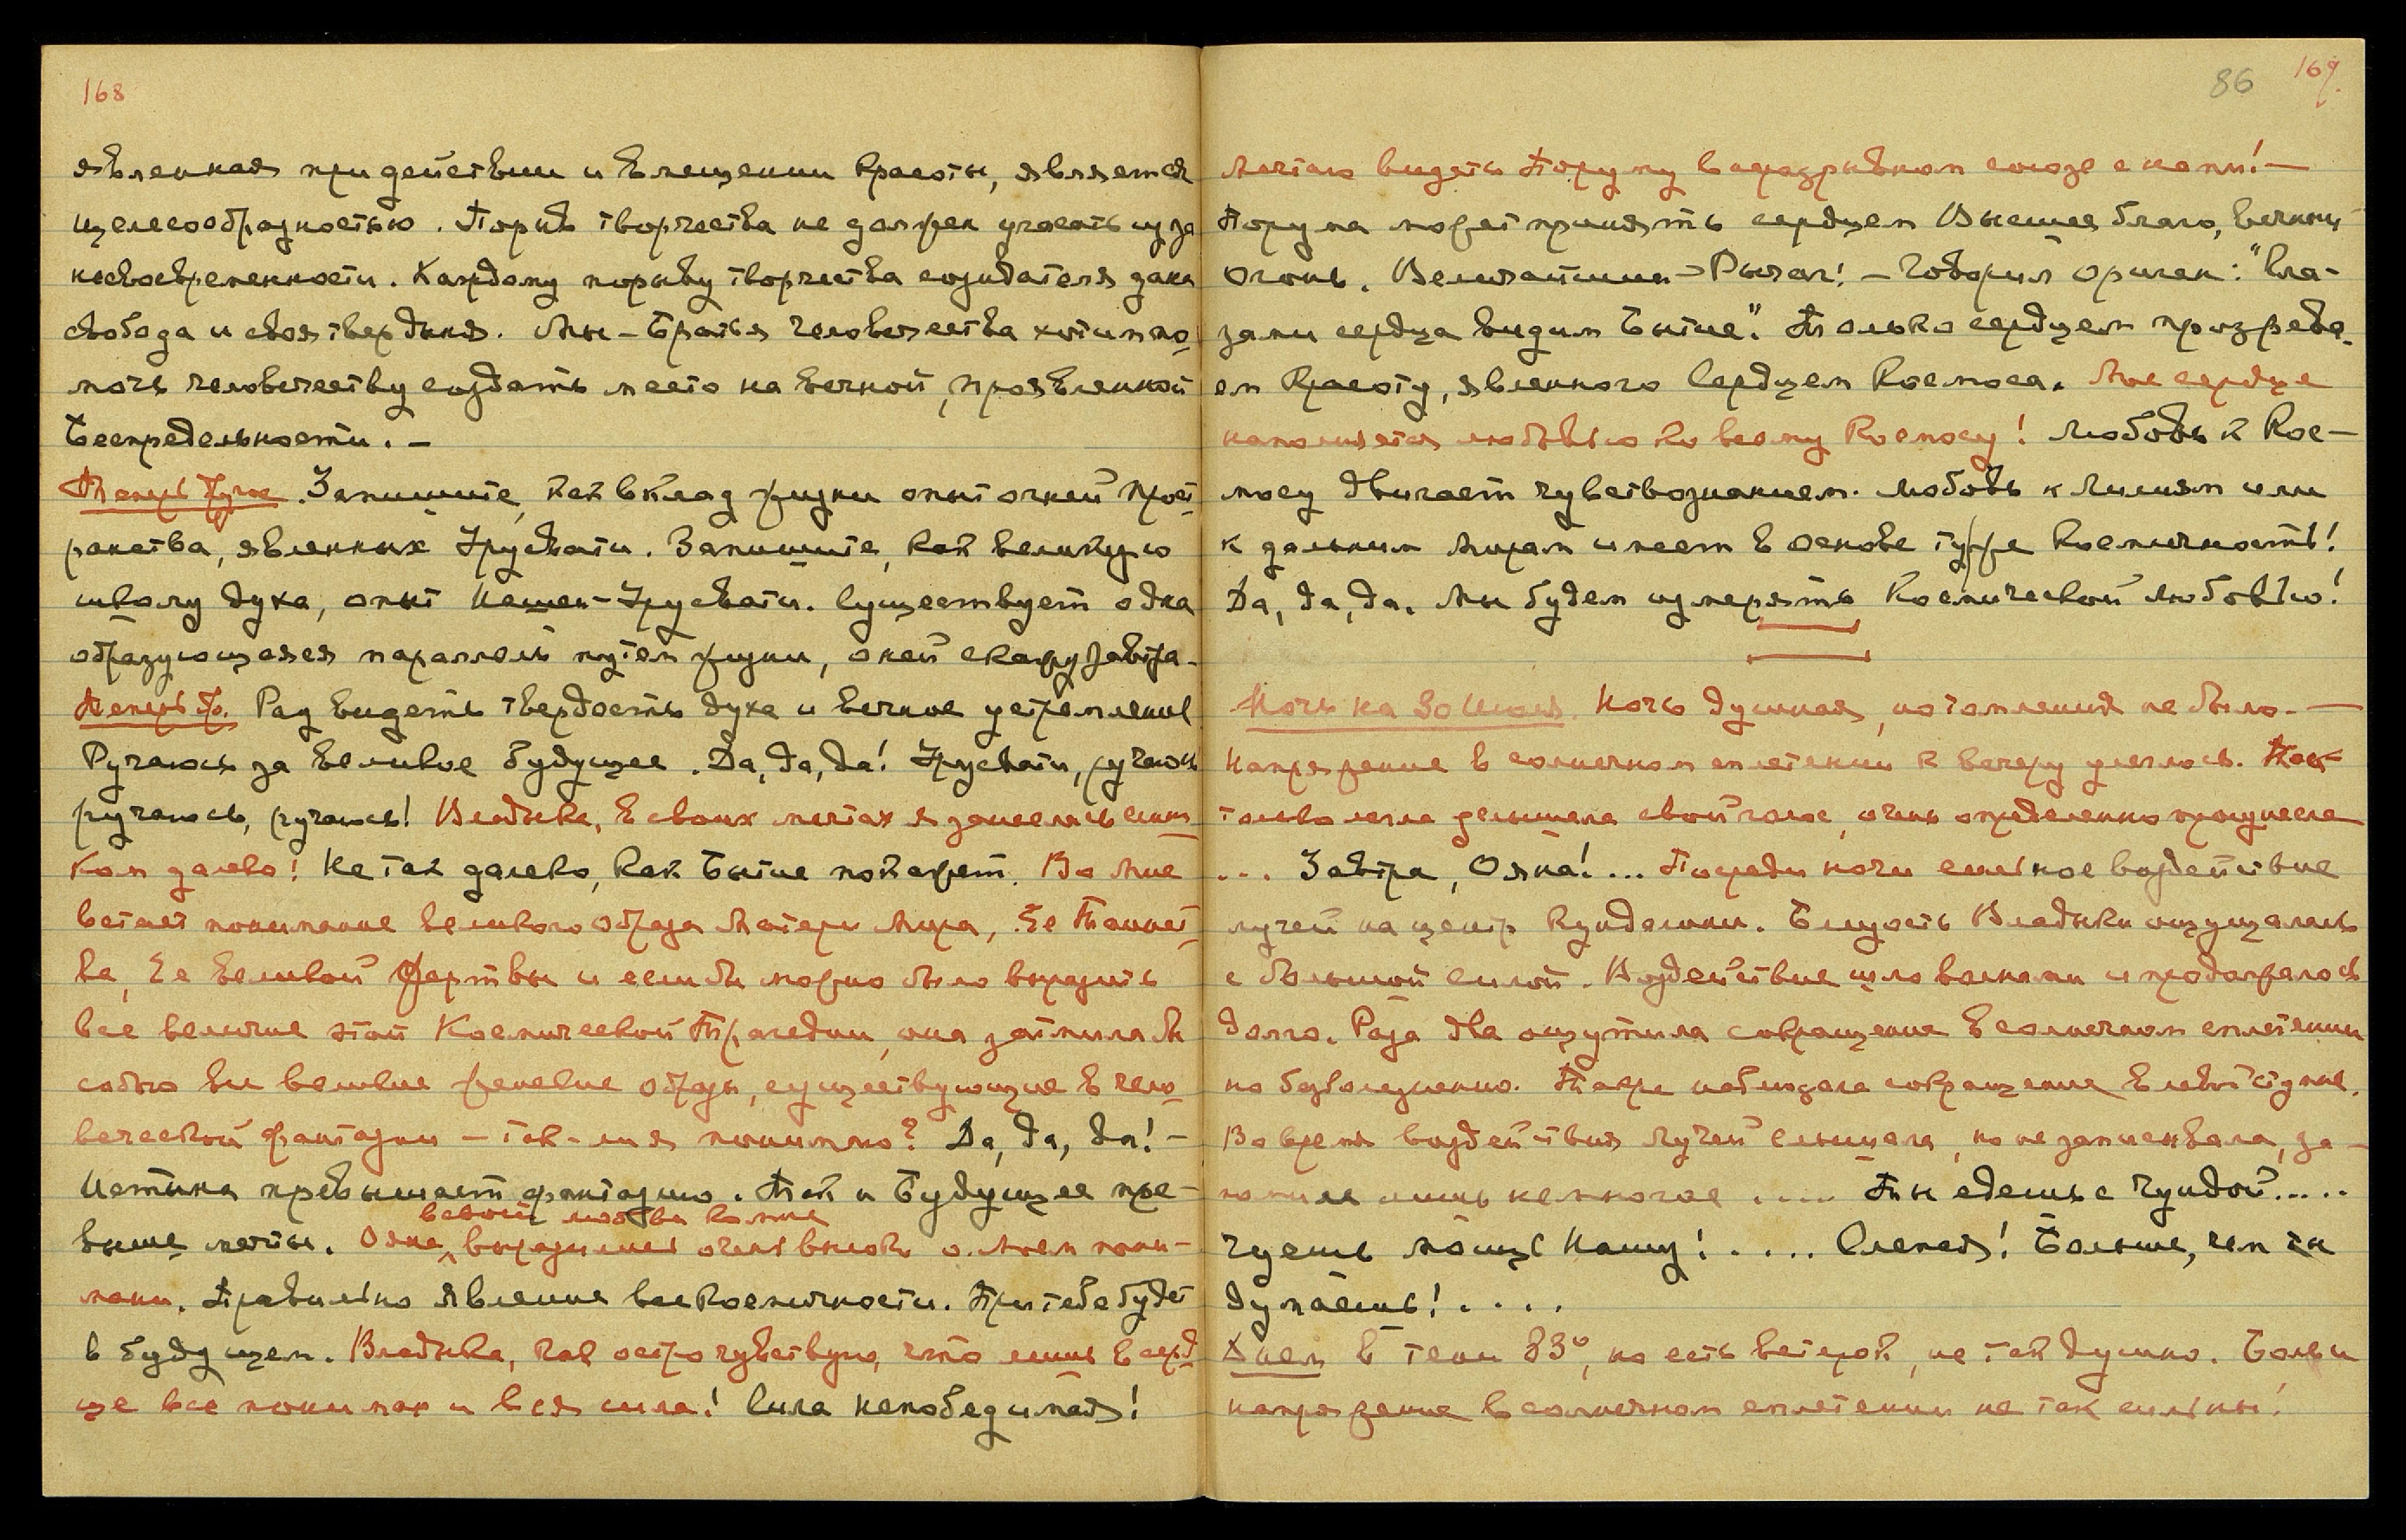 168
явленная при действии и влещении Красоты, является
целесообразностью. Порыв творчества не должен угасать из за
несвоевременности. Каждому порыву творчества создателя дана
свобода и своя твердыня. Мы - Братья Человечества хотим по-
мочь человечеству создать место на вечной, проявленной
Беспредельности. -
Теперь другое. Запишите, как вклад жизни опыт огней прост-
ранства, явленных Урусвати. Запишите, как великую
школу духа, опыт Нашей - Урусвати. Существует одна
образующаяся параллель путём жизни, о ней скажу завтра.
Теперь др. Рад видеть твердость духа и вечное устремление
Ручаюсь за великое будущее. Да, да, да! Урусвати, ручаюсь
ручаюсь, ручаюсь! Владыка, в своих мечтах я занеслась слиш-
ком далеко! Не так далеко, как Бытие покажет. Во мне
встает понимание великого образа Матери Мира, Ее Таинст-
ва, Ее великой жертвы и если бы можно было выразить
все величие этой Космической Трагедии, она затмила бы
собою все великие женские образы, существующие в чело-
веческой фантазии - так-ли я понимаю? Да, да, да! -
Истина превышает фантазию. Так и Будущее пре-
выше мечты. Ояна, выразилась очень высоко о Моем пони-
всвоей любви ко мне
мании. Правильно явление всекосмичности. При тебе будет
в будущем. Владыка, как остро чувствую, что лишь в серд-
це все понимание и вся сила! Сила непобедимая!
86 169.
Мечтаю видеть Поруму в неразрывном союзе с нами! -
Порума может принять сердцем Высшее благо, вечный
огонь. Величайший - Рычаг! - Говорил Ориген: "Гла-
зами сердца видим Бытие". Только сердцем прозрева-
ем Красоту, явленного Сердцем Космоса. Мое сердце
наполняется любовью ко всему Космосу! Любовь к Кос-
мосу двигает чувствознанием. Любовь к Лилиям или
к дальним мирам имеет в основе ту же Космичность!
Да, да, да. Мы будем измерять Космической любовью!
Ночь на 30 Июля. Ночь душная, но томления не было. -
Напряжение в солнечном сплетении к вечеру улеглось. Как
только легла услышала свой голос, очень определенно произнесла
... Завтра, Ояна!... Посреди ночи сильное воздействие
лучей на центр Кундалини. Близость Владыки ощущалась
с большой силой. Воздействие шло волнами и продолжалось
долго. Раза два ощутила сокращение в солнечном сплетении
но безболезненно. Также наблюдала сокращение в левой ступне.
Во время воздействия лучей слышала, но не записывала, за-
помнила лишь немногое .... Ты едешь с Чундой.....
Чуешь мощь Нашу! .... Слепая! Больше, чем ты
думаешь! ....
Днем в тени 83°, но есть ветерок, не так душно. Боли и
напряжение в солнечном сплетении не так сильны!